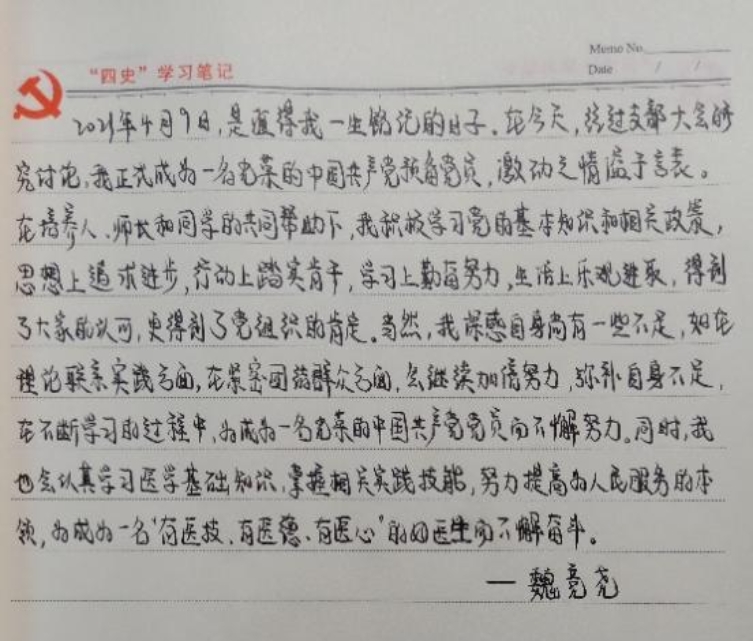 Memo No.
“四史”学习笔记
Date / /
2021年4月9日,是值得我一生铭记的日子。在今天,经过支部大会的
究讨论,我正式成为一名光荣的中国共产党预备党员,激动之情溢于言表。
在培养人、师长和同学的共同帮助下,我积极学习党的基本知识和相关政策,
思想上追求进步,行动上踏实肯干,学习上勤奋努力,生活上乐观进取,得到
了大家的认可,更得到了党组织的肯定。当然,我深感自身尚有一些不足,如在
理论联系实践方面,在紧密团结群众方面,会继续加倍努力,弥补自身不足,
在不断学习的过程中,为成为一名光荣的中国共产党党员而不懈努力。同时,我
也会认真学习医学基础知识,掌握相关实践技能,努力提高为人民服务的本
领,为成为一名‘有医技、有医德、有医心’的好医生而不懈奋斗。
— 魏亮尧